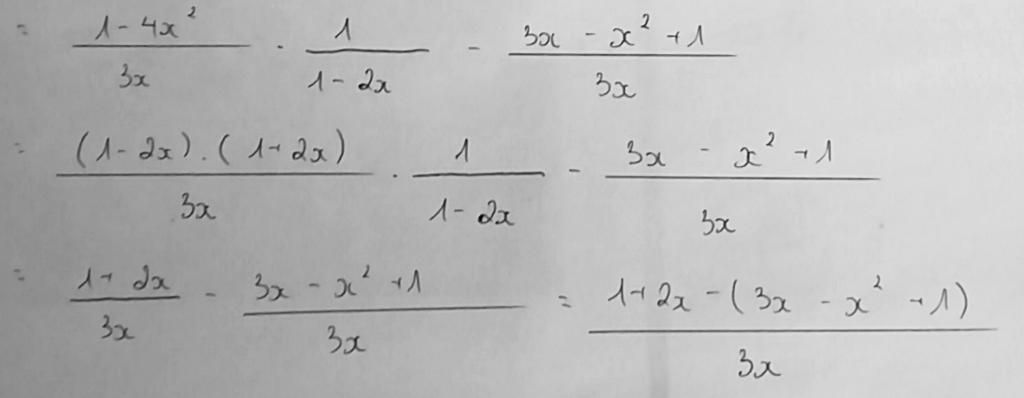 = \frac{1 - 4x^2}{3x} \cdot \frac{1}{1 - 2x} - \frac{3x - x^2 + 1}{3x}
= \frac{(1 - 2x) \cdot (1 + 2x)}{3x} \cdot \frac{1}{1 - 2x} - \frac{3x - x^2 + 1}{3x}
= \frac{1 + 2x}{3x} - \frac{3x - x^2 + 1}{3x} = \frac{1 + 2x - (3x - x^2 + 1)}{3x}